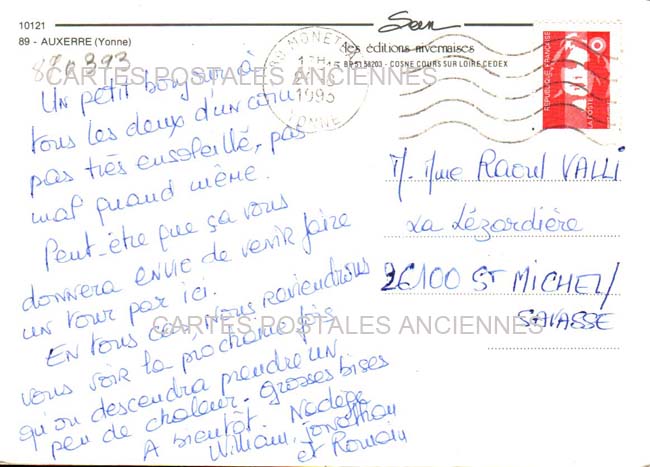 10121
89 - AUXERRE (Yonne)
Sean
les éditions nivernaises
BP 5158203 - COSNE COURS SUR LOIRE CEDEX
MONETEAU
17H
1993
YONNE
RÉPUBLIQUE FRANÇAISE
LA POSTE
CARTES POSTALES ANCIENNES
Un petit bonjour à
tous les deux d'un coin
pas très ensoleillé, pas
mal quand même.
Peut-être que ça vous
donnera envie de venir faire
un tour par ici.
En tous cas, nous reviendrons
vous voir la prochaine fois
qu'on descendra prendre un
peu de chaleur. Grosses bises
A bientôt. Nadège
William, Jonathan
et Romain
M. Mme Raoul VALLI
La Lézardière
26100 ST MICHEL/
SAVASSE
CARTES POSTALES ANCIENNES